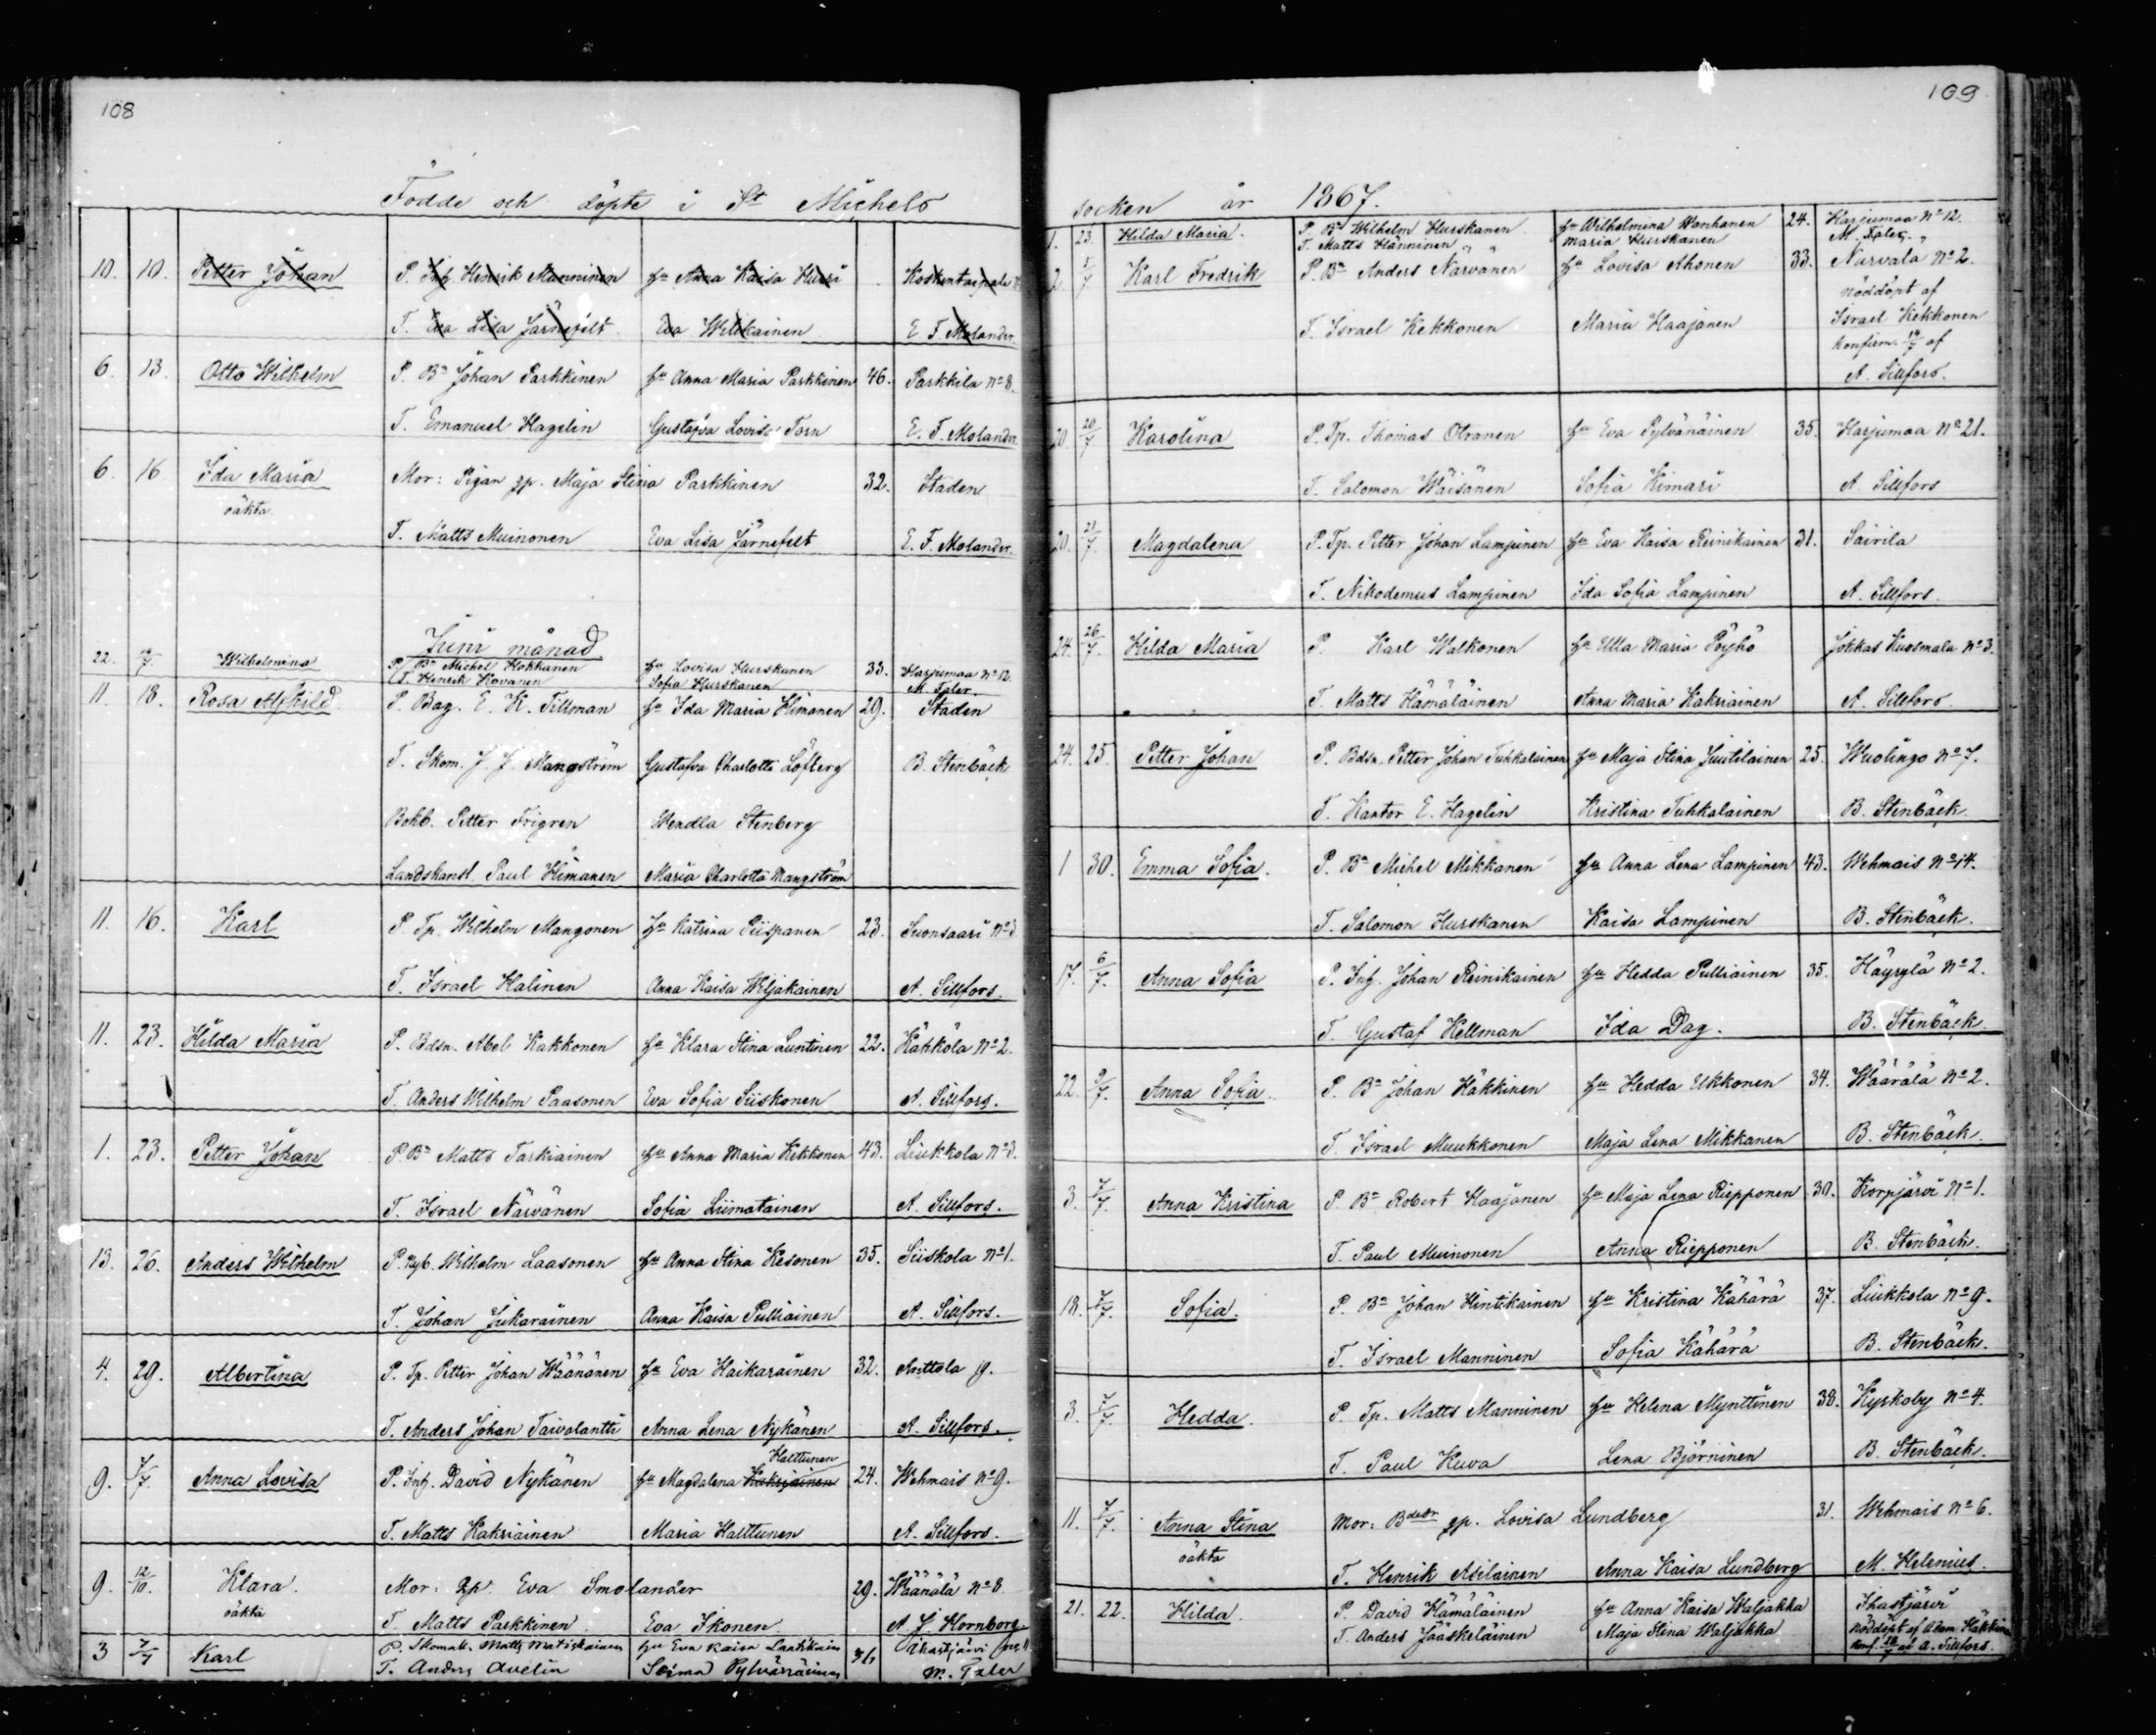 108
Födde och döpte i St Michels
10. 10. Petter Johan P. Inh. Henrik Manninen hu Anna Kaisa Hurri Koskentaipale
T. Eva Lisa Järnefelt Eva Wilikainen E. F. Molander.
6. 13. Otto Wilhelm P. Bn Johan Parkkinen hu Anna Maria Parkkinen 46. Parkkila No 8.
T. Emanuel Hagelin Gustafva Lovisa Torn E. F. Molander
6. 16 Ida Maria Mor: Pigan gp. Maja Stina Parkkinen 32. Staden
oäkta.
T. Matts Muinonen Eva Lisa Järnefelt E. F. Molander.
Juni månad
22. Wilhelmina P. Bn Michel Hokkanen hu Lovisa Hurskanen 33. Harjumaa No 12.
T. Henrik Kovanen Sofia Hurskanen M. Taler.
11. 18. Rosa Alfhild P. Bag. E. K. Tillman hu Ida Maria Himanen 29. Staden
T. Skom. J. J. Mangström Gustafva Charlotta Löfberg B. Stenbäck
Bokb. Petter Frigren Wendla Stenberg
Landskansl. Paul Himanen Maria Charlotta Mangström
11. 16. Karl P. Tp. Wilhelm Mangonen hu Katrina Piispanen 23. Suonsaari No 3
T. Israel Halinen Anna Kaisa Wiljakainen A. Sillfors.
11. 23. Hilda Maria P. Bdsn. Abel Kakkonen hu Klara Stina Luntinen 22. Käkkölä No 2.
T. Anders Wilhelm Paasonen Eva Sofia Siiskonen A. Sillfors.
1. 23. Petter Johan P. Bn Matts Tarkiainen hu Anna Maria Kekkonen 43. Liukkola No 3.
T. Israel Närvänen Sofia Liimatainen A. Sillfors.
13. 26. Anders Wilhelm P. Nyb. Wilhelm Laasonen hu Anna Stina Kesonen 35. Siiskola No 1.
T. Johan Jukarainen Anna Kaisa Pulliainen A. Sillfors.
4. 29. Albertina P. Tp. Petter Johan Wäänänen hu Eva Kaikarainen 32. Anttola 19.
T. Anders Johan Taivalantti Anna Lena Nykänen A. Sillfors.
Halttunen
9. 7/7. Anna Lovisa P. Inh. David Nykänen hu Magdalena Kakriainen 24. Wehmais No 9.
T. Matts Kakriainen Maria Halttunen A. Sillfors.
9. 12/10. Klara. Mor: gp. Eva Smolander 29. Wäänälä No 8
oäkta
T. Matts Parkkinen Eva Ikonen A. J. Hornborg
3 7/7 Karl P. Skomak. Matts Matiskainen hu Eva Kaisa Laatikain Ihastjärvi
T. Anders Avelin M. Taler
109
socken år 1867.
1. 23. Hilda Maria. P. Bn Wilhelm Hurskanen hu Wilhelmina Wanhanen 24. Harjumaa No 12.
T. Matts Hänninen Maria Hurskanen M. Taler.
2. 5/7 Karl Fredrik P. Bn Anders Närvänen hu Lovisa Ahonen 33. Närvälä No 2.
nöddöpt af
T. Israel Kekkonen Maria Haajanen Israel Kekkonen
konfirm. 14/7 af
A. Sillfors.
20. 20/7 Karolina P. Tp. Thomas Otranen hu Eva Pylvänäinen 35. Harjumaa No 21.
T. Salomon Wäisänen Sofia Kimari A. Sillfors
20. 21/7. Magdalena P. Tp. Petter Johan Lampinen hu Eva Kaisa Reinikainen 31. Sairila
T. Nikodemus Lampinen Ida Sofia Lampinen A. Sillfors.
24. 26/7. Hilda Maria P. Karl Walkonen hu Ulla Maria Pöyhö Jokkas Kuosmala No 3.
T. Matts Hämäläinen Anna Maria Kakriainen A. Sillfors.
24. 25. Petter Johan P. Bdsn. Petter Johan Tuhkalainen hu Maja Stina Juutilainen 25. Wuolingo No 7.
T. Kantor E. Hagelin Kristina Tuhkalainen B. Stenbäck.
1 30. Emma Sofia. P. Bn Michel Mikkanen hu Anna Lena Lampinen 43. Wehmais No 14.
T. Salomon Hurskanen Kaisa Lampinen B. Stenbäck.
17. 6/7. Anna Sofia P. Inh. Johan Reinikainen hu Hedda Pulliainen 35. Häyrylä No 2.
T. Gustaf Hellman Ida Dag. B. Stenbäck.
22. 9/7. Anna Sofia. P. Bn Johan Häkkinen hu Hedda Ukkonen 34. Wäärälä No 2.
T. Israel Muukkonen Maja Lena Mikkanen B. Stenbäck.
3. 7/7. Anna Kristina P. Bn Robert Haajanen hu Maja Lena Riepponen 30. Korpjärvi No 1.
T. Paul Muinonen Anna Riepponen B. Stenbäck.
18. 7/7. Sofia. P. Bn Johan Hintikainen hu Kristina Kähärä 37. Liukkola No 9.
T. Israel Manninen Sofia Kähärä B. Stenbäck.
3. 7/7 Hedda. P. Tp. Matts Manninen hu Helena Mynttinen 38. Kyrkoby No 4.
T. Paul Kuva Lena Björninen B. Stenbäck.
11. 7/7. Anna Stina Mor: Bdotr gp. Lovisa Lundberg 31. Wehmais No 6.
oäkta
T. Henrik Asilainen Anna Kaisa Lundberg M. Helenius.
21. 22. Hilda. P. David Hämäläinen hu Anna Kaisa Waljakka Ihastjärvi
T. Anders Jääskeläinen Maja Stina Waljakka nöddöpt af Adam Häkkinen
A. Sillfors.